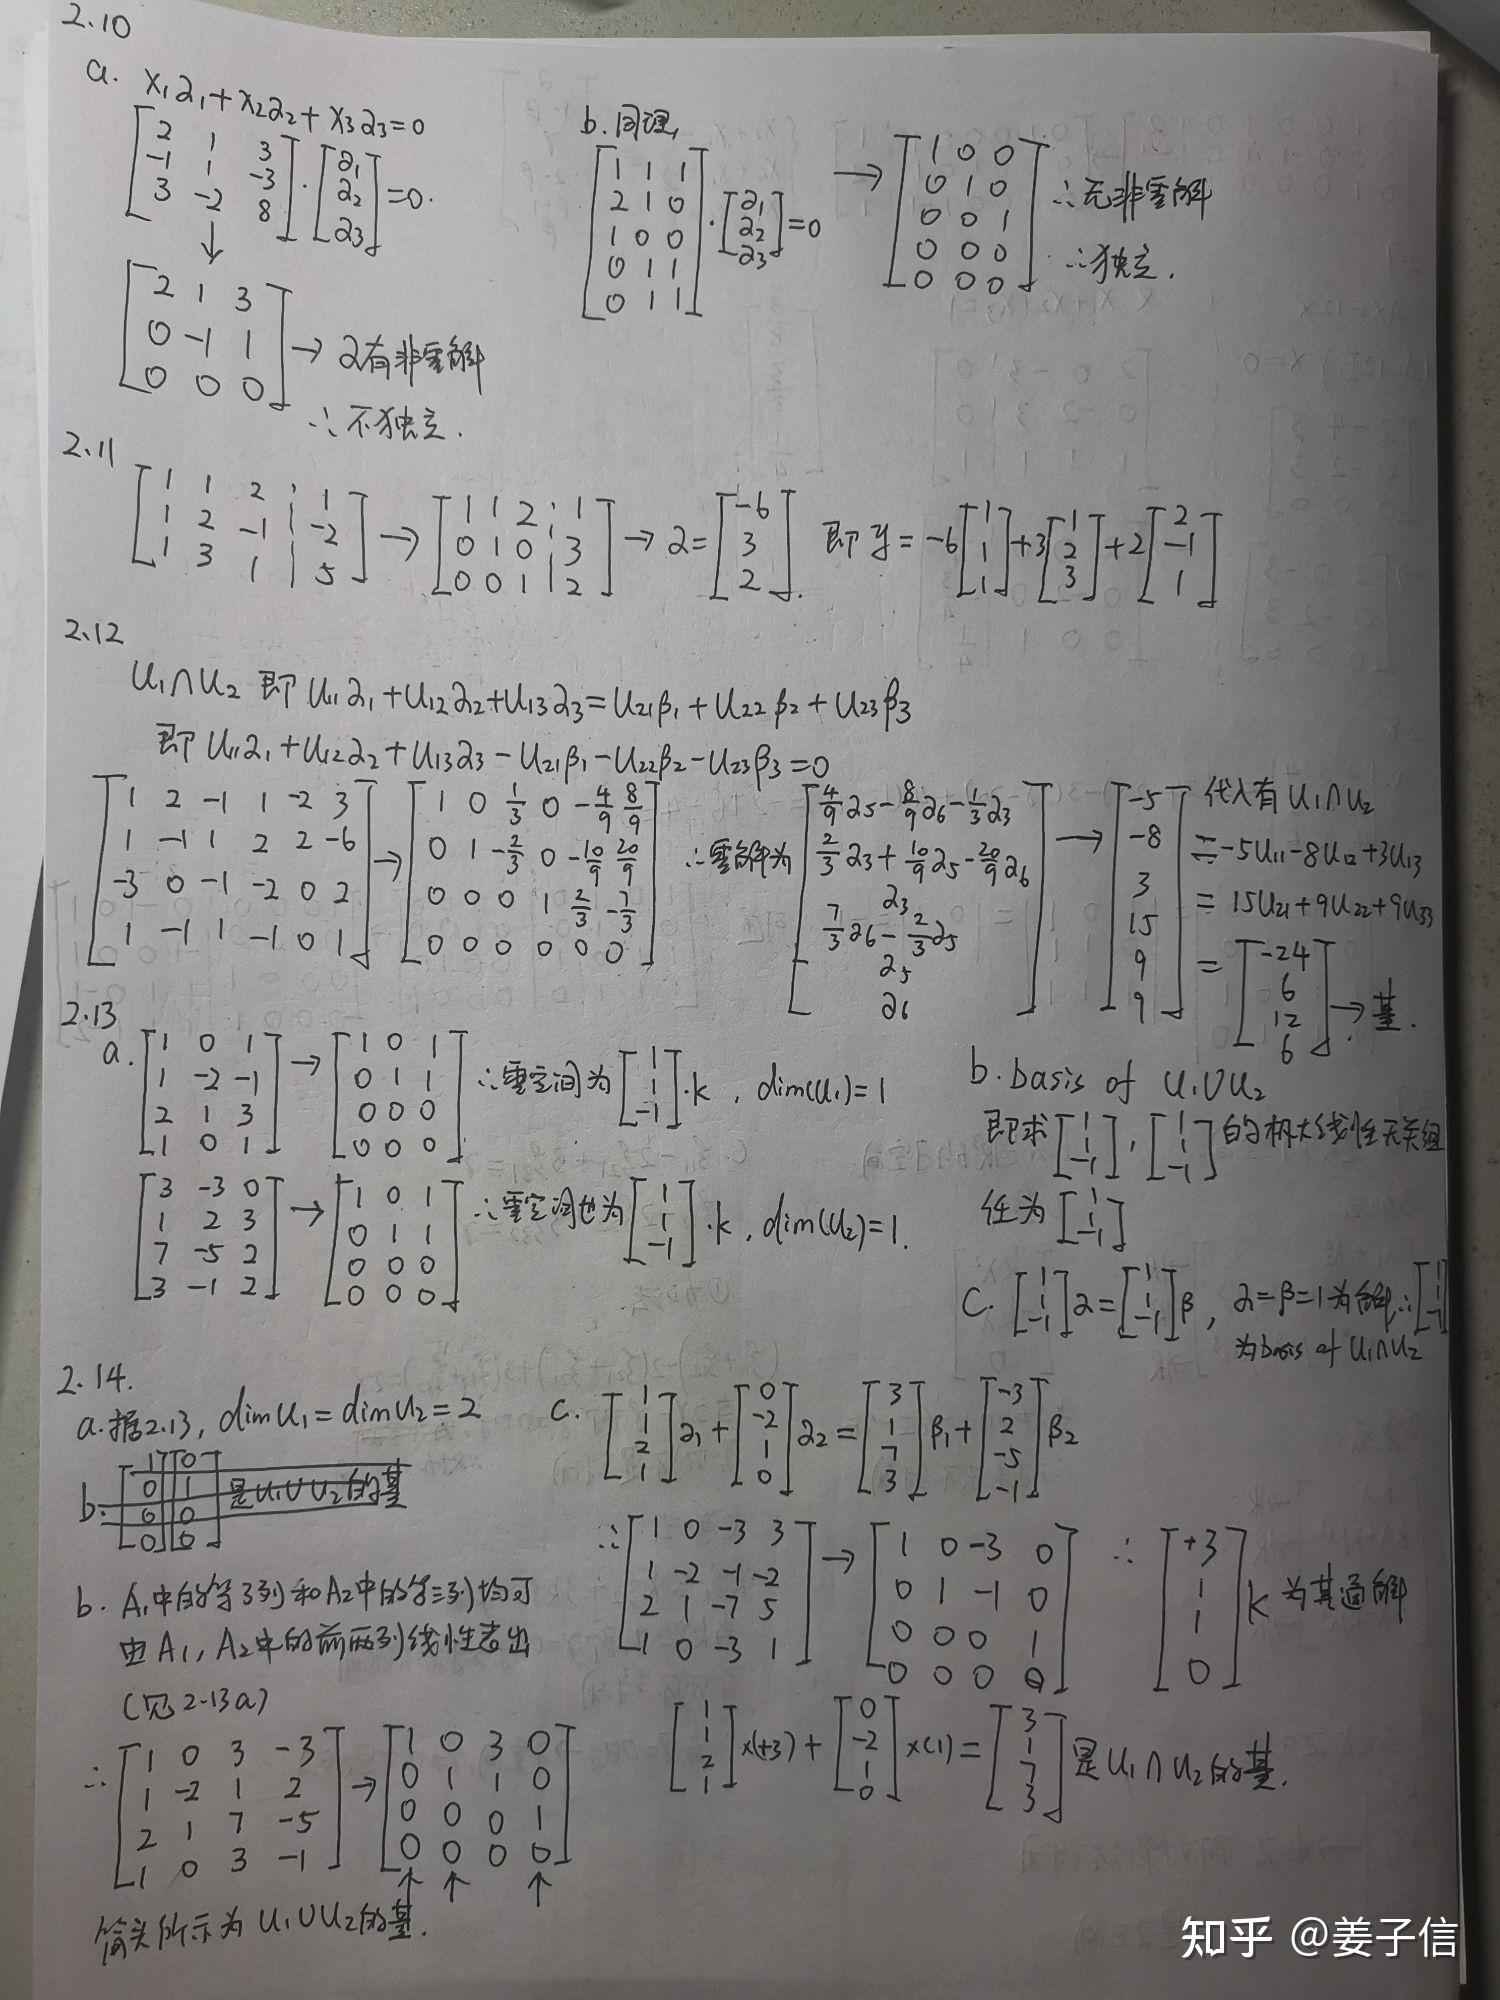 2.10
a. x₁α₁+x₂α₂+x₃α₃=0
[2 1 3; -1 1 -3; 3 -2 8]·[α₁; α₂; α₃]=0.
↓
[2 1 3; 0 -1 1; 0 0 0] → α有非零解
∴不独立.
b. 同理,
[1 1 1; 2 1 0; 1 0 0; 0 1 1; 0 1 1]·[α₁; α₂; α₃]=0 → [1 0 0; 0 1 0; 0 0 1; 0 0 0; 0 0 0] ∴无非零解
∴独立.
2.11
[1 1 2 | 1; 1 2 -1 | -2; 1 3 1 | 5] → [1 1 2 | 1; 0 1 0 | 3; 0 0 1 | 2] → α=[-6; 3; 2]. 即y=-6[1; 1; 1]+3[1; 2; 3]+2[2; -1; 1]
2.12
U₁∩U₂ 即 U₁₁α₁+U₁₂α₂+U₁₃α₃=U₂₁β₁+U₂₂β₂+U₂₃β₃
即 U₁₁α₁+U₁₂α₂+U₁₃α₃-U₂₁β₁-U₂₂β₂-U₂₃β₃=0
[1 2 -1 1 -2 3; 1 -1 1 2 2 -6; -3 0 -1 -2 0 2; 1 -1 1 -1 0 1] → [1 0 1/3 0 -4/9 8/9; 0 1 -2/3 0 -10/9 20/9; 0 0 0 1 2/3 -7/3; 0 0 0 0 0 0]
∴零解为 [4/9α₅-8/9α₆-1/3α₃; 2/3α₃+10/9α₅-20/9α₆; α₃; 7/3α₆-2/3α₅; α₅; α₆] → [-5; -8; 3; 15; 9; 9] 代入有 U₁∩U₂
=-5U₁₁-8U₁₂+3U₁₃
=15U₂₁+9U₂₂+9U₃₃
=[-24; 6; 12; 6] → 基.
2.13
a. [1 0 1; 1 -2 -1; 2 1 3; 1 0 1] → [1 0 1; 0 1 1; 0 0 0; 0 0 0] ∴零空间为[1; 1; -1]·k, dim(U₁)=1
[3 -3 0; 1 2 3; 7 -5 2; 3 -1 2] → [1 0 1; 0 1 1; 0 0 0; 0 0 0] ∴零空间也为[1; 1; -1]·k, dim(U₂)=1.
b. basis of U₁∪U₂
即求[1; 1; -1], [1; 1; -1]的极大线性无关组
任为[1; 1; -1]
c. [1; 1; -1]α=[1; 1; -1]β, α=β=1为解,∴[1; 1; -1]
为basis of U₁∩U₂
2.14.
a. 据2.13, dimU₁=dimU₂=2
b. [1; 0; 0; 0][0; 1; 0; 0] 是U₁∪U₂的基
b. A₁中的第3列和A₂中的第三列均可
由A₁, A₂中的前两列线性表出
(见2.13a)
∴ [1 0 3 -3; 1 -2 1 2; 2 1 7 -5; 1 0 3 -1] → [1 0 3 0; 0 1 1 0; 0 0 0 1; 0 0 0 0]
↑ ↑ ↑
箭头所示为 U₁∪U₂的基.
c. [1; 1; 2; 1]α₁+[0; -2; 1; 0]α₂=[3; 1; 7; 3]β₁+[-3; 2; -5; -1]β₂
∴[1 0 -3 3; 1 -2 -1 -2; 2 1 -7 5; 1 0 -3 1] → [1 0 -3 0; 0 1 -1 0; 0 0 0 1; 0 0 0 0] ∴ [+3; 1; 1; 0]k 为其通解
[1; 1; 2; 1]×(+3)+[0; -2; 1; 0]×(1)=[3; 1; 7; 3] 是U₁∩U₂的基.
知乎 @姜子信